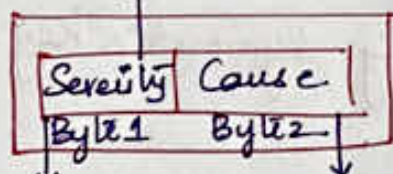 Severity Cause
Byte1 Byte2